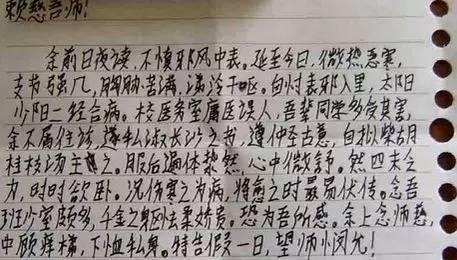 赖慈吾师!
余前日夜读,不慎邪风中表。延至今日,微热恶寒,
支节强几,胸胁苦满,涕泠干呕。自忖表邪入里,太阳
少阳二经合病。校医务室庸医误人,吾辈同学多受其害,
余不屑往诊,遂私淑长沙之书,遵仲圣古意,自拟柴胡
桂枝汤主之。服后遍体漐然,心中微舒。然四末乏
力,时时欲卧。况伤寒之为病,将愈之时最易伏传。念吾
班少室颇多,千金之躯怯柔娇贵。恐为吾所感。余上念师慈,
中顾痒梯,下恤私身。特告假一日,望师怜闵允!